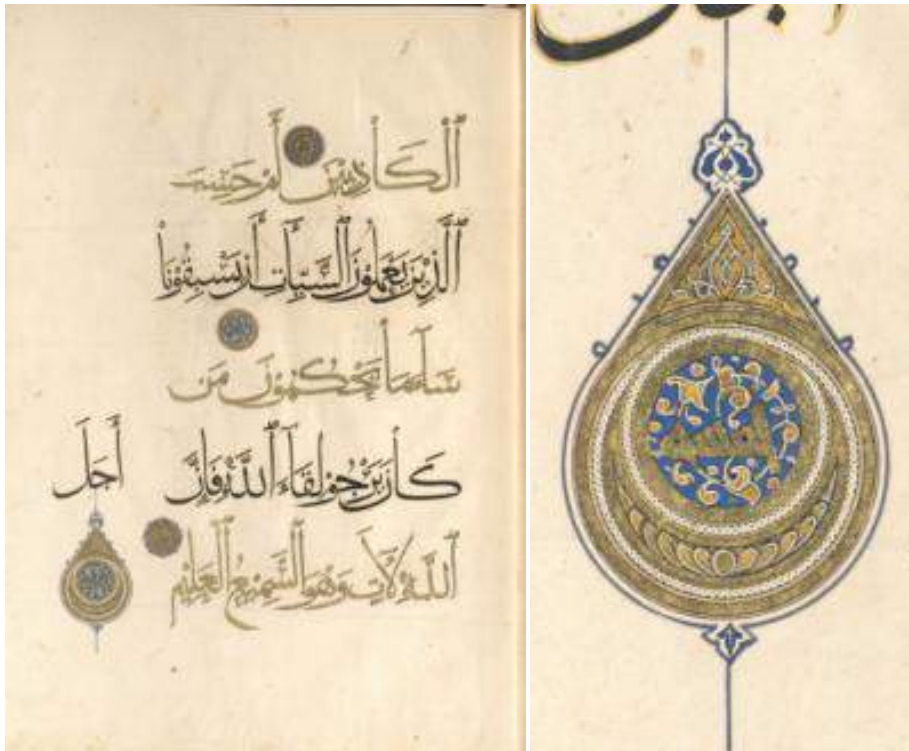 الكاذبين أم حسب
الَّذِينَ يَعْمَلُونَ السَّيِّأَتِ أَن يَسْبِقُونَا
سَآءَ مَا يَحْكُمُونَ مَن
كَانَ يَرْجُو لِقَآءَ اللَّهِ فَإِنَّ
أَجَلَ
اللَّهِ لَآتٍ وَهُوَ السَّمِيعُ الْعَلِيمُ